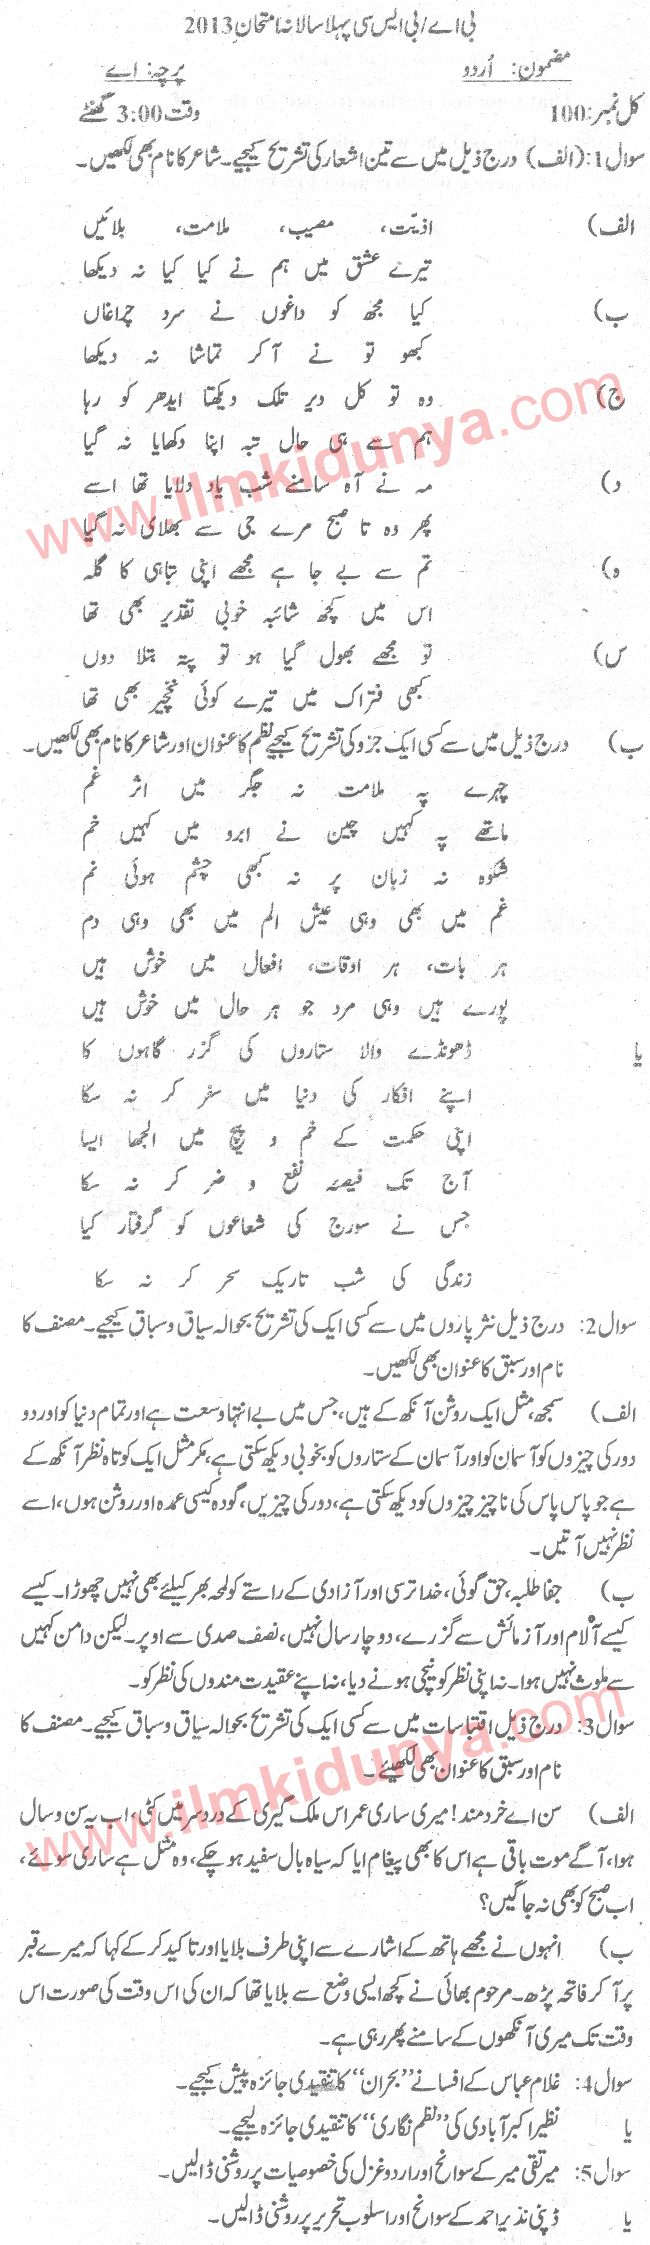 بی اے/بی ایس سی پہلا سالانہ امتحان 2013
مضمون: اُردو پرچہ: اے
کل نمبر:100 وقت 3:00 گھنٹے
سوال 1: (الف) درج ذیل میں سے تین اشعار کی تشریح کیجیے۔ شاعر کا نام بھی لکھیں۔
الف) اذیّت، مصیب، ملامت، بلائیں
تیرے عشق میں ہم نے کیا کیا نہ دیکھا
ب) کیا مجھ کو داغوں نے سرد چراغاں
کبھو تو نے آ کر تماشا نہ دیکھا
ج) وہ تو کل دیر تلک دیکتا ایدھر کو رہا
ہم سے ہی حال تبہ اپنا دکھایا نہ گیا
د) مہ نے آہ سامنے شب یاد دلایا تھا اسے
پھر وہ تا صبح مرے جی سے بھلائی نہ گیا
ہ) تم سے بے جا ہے مجھے اپنی تباہی کا گلہ
اس میں کچھ شائبہ خوبی تقدیر بھی تھا
س) تو مجھے بھول گیا ہو تو پتہ بتلا دوں
کبھی فتراک میں تیرے کوئی نخچیر بھی تھا
ب) درج ذیل میں سے کسی ایک جزو کی تشریح کیجیے نظم کا عنوان اور شاعر کا نام بھی لکھیں۔
چہرے پہ ملامت نہ جگر میں اثر غم
ماتھے پہ کہیں چین نے ابرو میں کہیں خم
شکوہ نہ زبان پر نہ کبھی چشم ہوئی نم
غم میں بھی وہی عیش الم میں بھی وہی دم
ہر بات، ہر اوقات، افعال میں خوش ہیں
پورے ہیں وہی مرد جو ہر حال میں خوش ہیں
یا ڈھونڈے والا ستاروں کی گزر گاہوں کا
اپنے افکار کی دنیا میں سفر کر نہ سکا
اپنی حکمت کے خم و پیچ میں الجھا ایسا
آج تک فیصلہ نفع و ضر کر نہ سکا
جس نے سورج کی شعاعوں کو گرفتار کیا
زندگی کی شب تاریک سحر کر نہ سکا
سوال 2: درج ذیل نثر پاروں میں سے کسی ایک کی تشریح بحوالہ سیاق و سباق کیجیے۔ مصنف کا
نام اور سبق کا عنوان بھی لکھیں۔
الف) سمجھ، مثل ایک روشن آنکھ کے ہیں، جس میں بے انتہا وسعت ہے اور تمام دنیا کو اور دو
دور کی چیزوں کو آسمان کو اور آسمان کے ستاروں کو بخوبی دیکھ سکتی ہے، مکر مثل ایک کوتاہ نظر آنکھ کے
ہے جو پاس پاس کی ناچیز چیزوں کو دیکھ سکتی ہے، دور کی چیزیں، گودہ کیسی عمدہ اور روشن ہوں، اسے
نظر نہیں آتیں۔
ب) جفا طلبہ، حق گوئی، خدا ترسی اور آزادی کے راستے کو لمحہ بھر کیلئے بھی نہیں چھوڑا۔ کیسے
کیسے آلام اور آزمائش سے گزرے، دو چار سال نہیں، نصف صدی سے اوپر۔ لیکن دامن کہیں
سے ملوث نہیں ہوا۔ نہ اپنی نظر کو نیچی ہونے دیا، نہ اپنے عقیدت مندوں کی نظر کو۔
سوال 3: درج ذیل اقتباسات میں سے کسی ایک کی تشریح بحوالہ سیاق و سباق کیجیے۔ مصنف کا
نام اور سبق کا عنوان بھی لکھیئے۔
الف) سن اے خردمند! میری ساری عمر اس ملک گیری کے دردسر میں کٹی، اب یہ سن و سال
ہوا، آگے موت باقی ہے اس کا بھی پیغام ایا کہ سیاہ بال سفید ہو چکے، وہ مثل ہے ساری سوئے،
اب صبح کو بھی نہ جاگیں؟
ب) انہوں نے مجھے ہاتھ کے اشارے سے اپنی طرف بلایا اور تاکید کر کے کہا کہ میرے قبر
پر آ کر فاتحہ پڑھ۔ مرحوم بھائی نے کچھ ایسی وضع سے بلایا تھا کہ ان کی اس وقت کی صورت اس
وقت تک میری آنکھوں کے سامنے پھر رہی ہے۔
سوال 4: غلام عباس کے افسانے "بحران" کا تنقیدی جائزہ پیش کیجیے۔
یا نظیر اکبر آبادی کی "نظم نگاری" کا تنقیدی جائزہ لیجیے۔
سوال 5: میر تقی میر کے سوانح اور اردو غزل کی خصوصیات پر روشنی ڈالیں۔
یا ڈپٹی نذیر احمد کے سوانح اور اسلوب تحریر پر روشنی ڈالیں۔
www.ilmkidunya.com
www.ilmkidunya.com